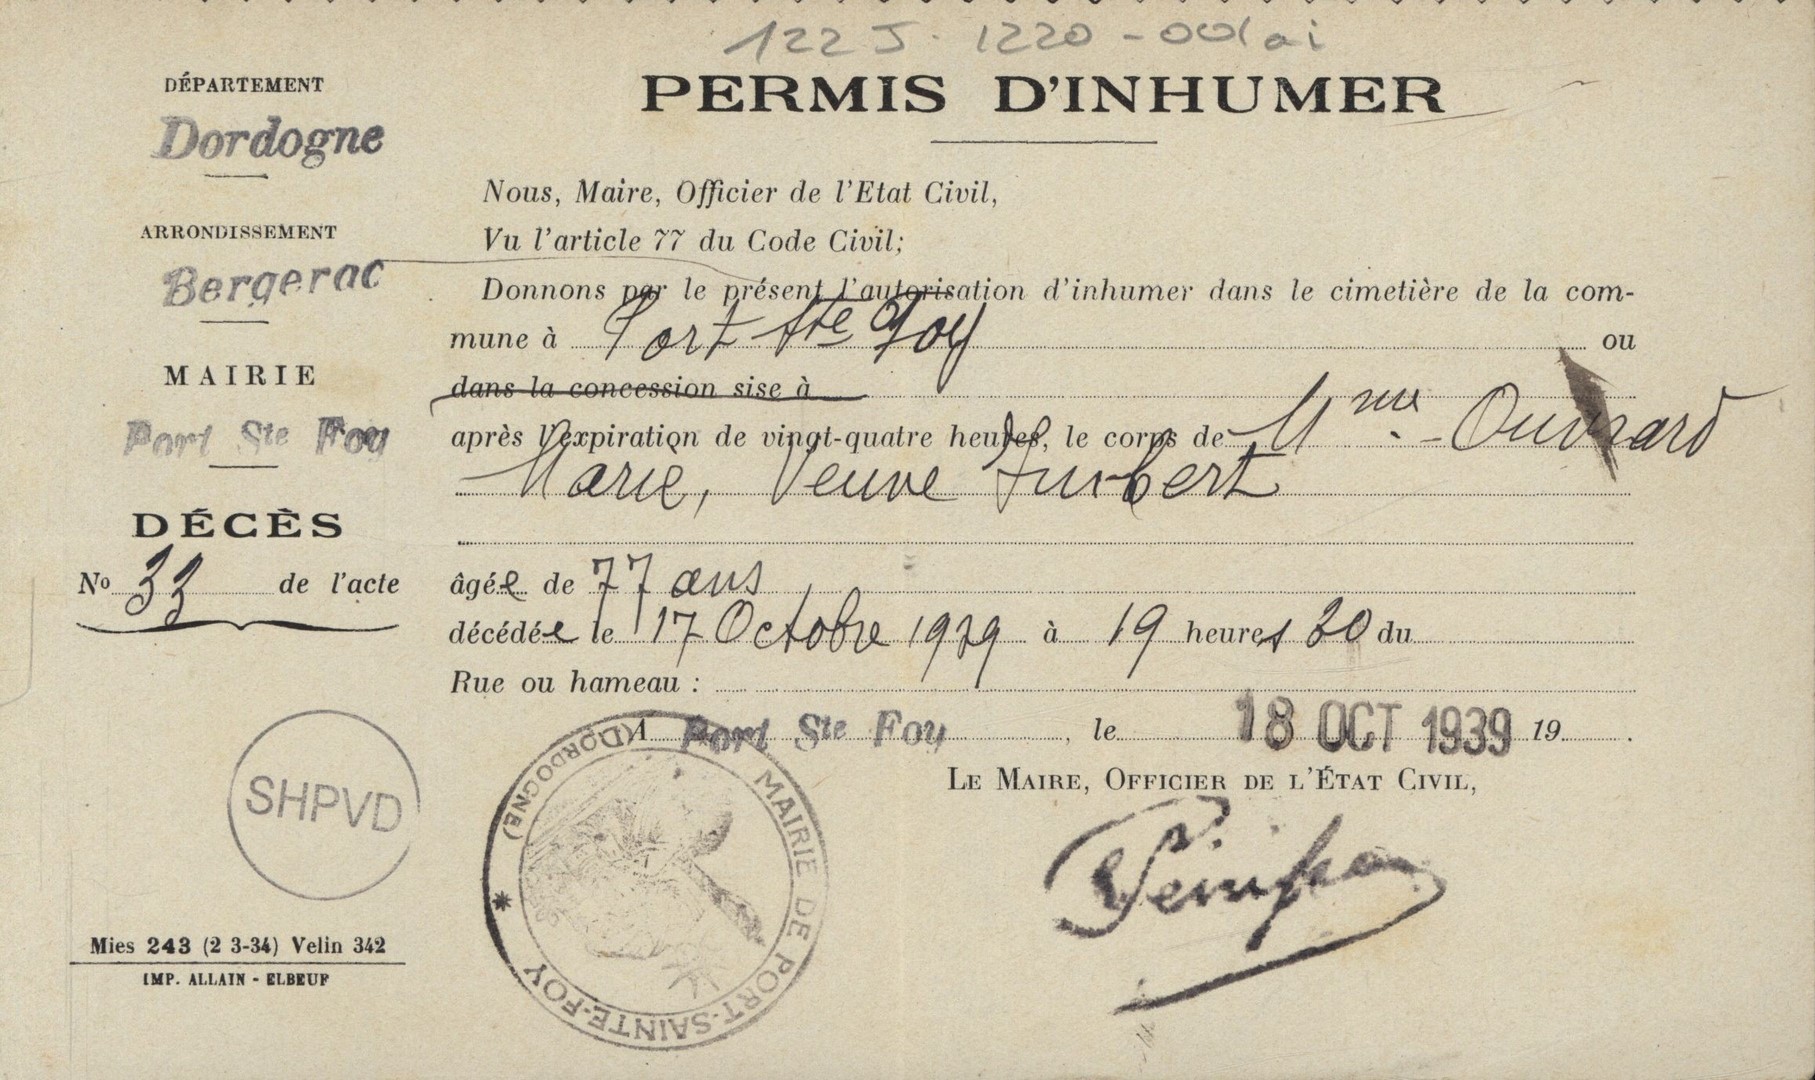 122 J. 1220-001ai
PERMIS D'INHUMER
DÉPARTEMENT
Dordogne
ARRONDISSEMENT
Bergerac
MAIRIE
Port Ste Foy
DÉCÈS
No 33 de l'acte
Nous, Maire, Officier de l'Etat Civil,
Vu l'article 77 du Code Civil;
Donnons par le présent l'autorisation d'inhumer dans le cimetière de la com-
mune à Port Ste Foy ou
dans la concession sise à
après l'expiration de vingt-quatre heures, le corps de Mme Ouvrard
Marie, Veuve
âgée de 77 ans
décédée le 17 Octobre 1939 à 19 heures 30 du
Rue ou hameau :
A Port Ste Foy, le 18 OCT 1939 19 .
LE MAIRE, OFFICIER DE L'ÉTAT CIVIL,
SHPVD
MAIRIE DE PORT-SAINTE-FOY * (DORDOGNE)
Mies 243 (2 3-34) Velin 342
IMP. ALLAIN - ELBEUF